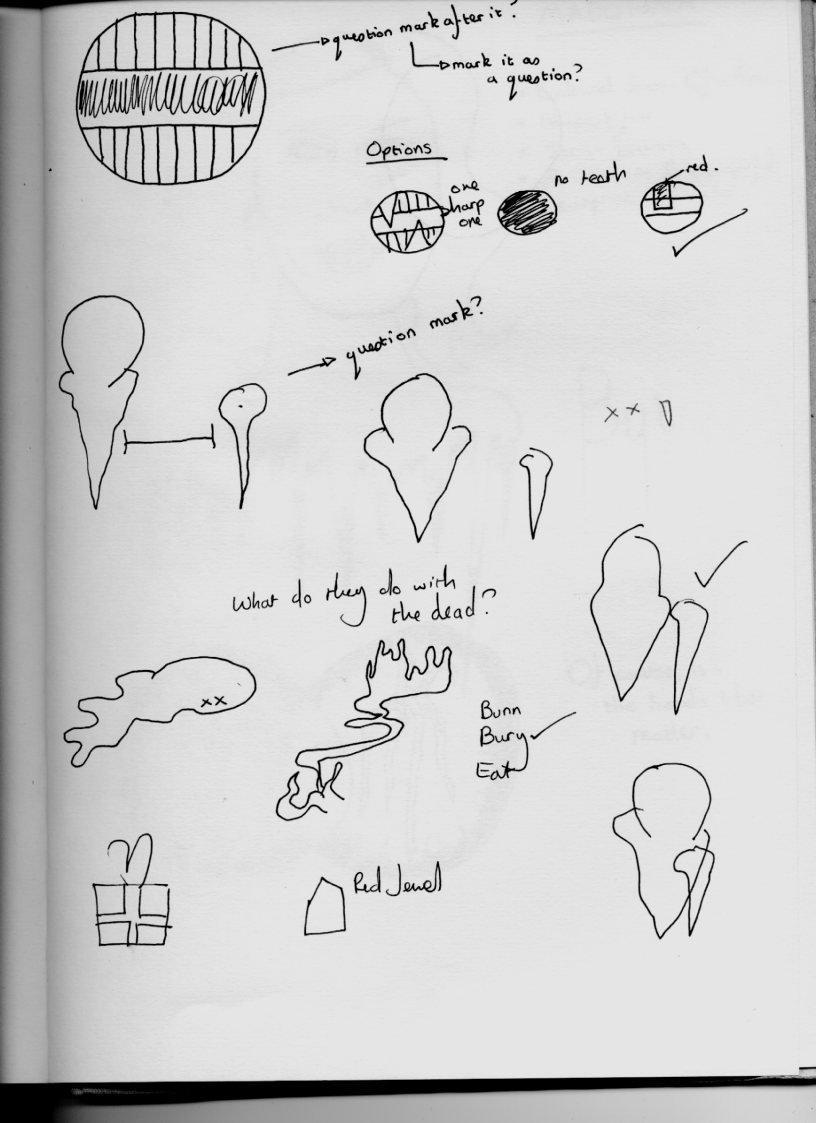 question mark after it?
mark it as
a question?
Options
one
sharp
one
no teeth
red.
question mark?
x x
What do they do with
the dead?
xx
Burn
Bury
Eat
Red Jewel